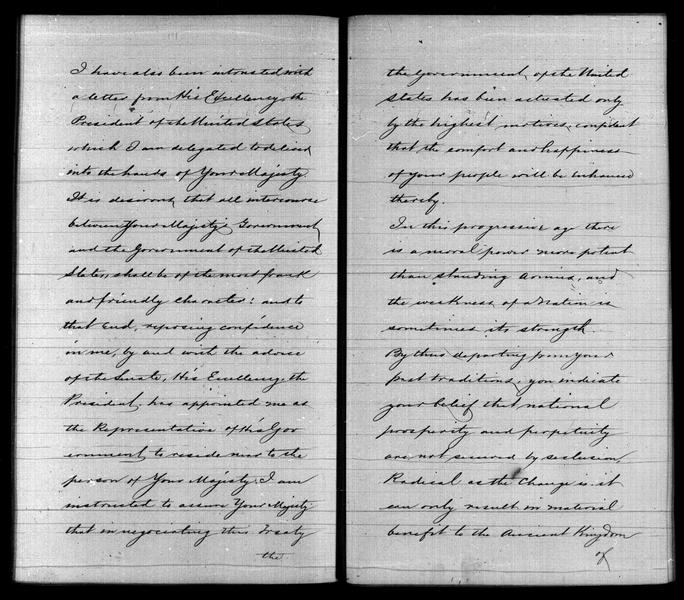 I have also been intrusted with
a letter from His Excellency the
President of the United States
which I am delegated to deliver
into the hands of Your Majesty
It is desirous that all intercourse
between Your Majesty's Government
and the Government of the United
States, shall be of the most frank
and friendly character: and to
that End, reposing confidence
in me, by and with the advice
of the Senate, His Excellency the
President, has appointed me as
the Representative of His Gov
ernment to reside near to the
person of Your Majesty. I am
instructed to assure Your Majesty
that in negociating this Treaty
the
the Government of the United
States has been actuated only
by the highest motives, confident
that the comfort and happiness
of your people will be enhanced
thereby.
In this progressive age there
is a moral power more potent
than standing Armies, and
the weakness of a Nation is
sometimes its strength.
By thus departing from your
past traditions, you indicate
your belief that national
prosperity and perpetuity
are not secured by seclusion.
Radical as the Change is, it
can only result in material
benefit to the Ancient Kingdom
of